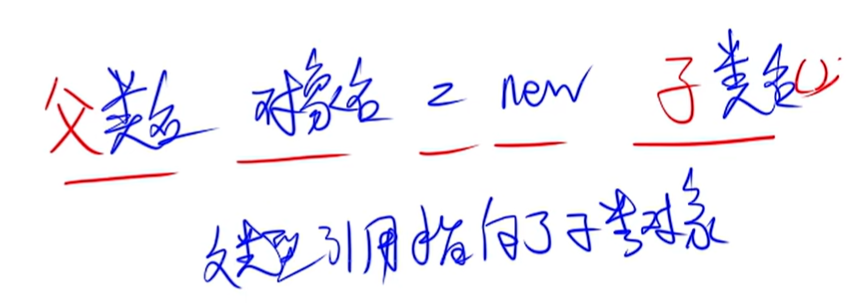 父类名 对象名 = new 子类名();
父类型引用指向了子类对象